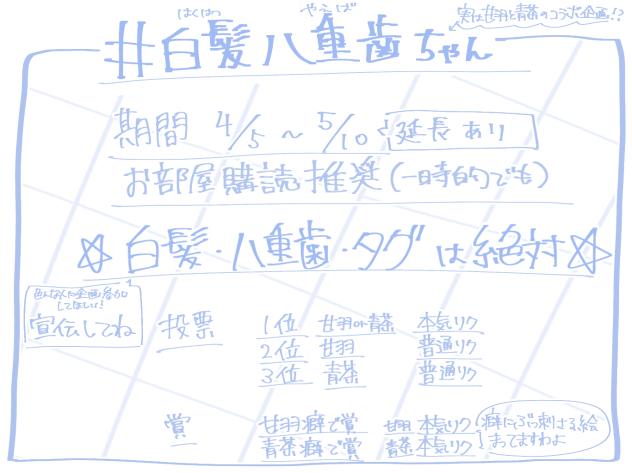 実は甘羽と青茶のコラボ企画!?
はくはつ やえば
#白髪八重歯ちゃん
期間 4/5 ~ 5/10 延長あり
お部屋購読推奨(一時的でも)
☆白髪・八重歯・タグは絶対☆
色んな人に企画参加
してほしい!
宣伝してね
投票 1位 甘羽or青茶 本気リク
2位 甘羽 普通リク
3位 青茶 普通リク
賞 甘羽癖で賞 甘羽本気リク
青茶癖で賞 青茶本気リク
癖にぶっ刺さる絵
まってますわよ